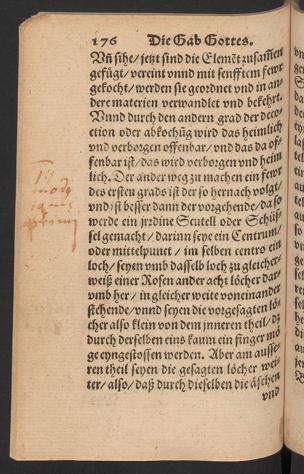 176 Die Gab Gottes.
Vñ sihe/ jetzt sind die Elemēt zusam̄en
gefügt/ vereint vnnd mit senfftem fewr
gekocht/ werden sie geordnet vnd in an-
dere materien verwandlet vnd bekehrt.
Vnnd durch den andern grad der deco-
ction oder abkochūg wird das heimlich
vnd verborgen offenbar/ vnd das da of-
fenbar ist/ das wird verborgen vnd heim
lich. Der ander weg zu machen ein fewr
des ersten grads ist der so hernach volgt/
vnd ist besser dann der vorgehende/ da so
werde ein jrrdine Scutell oder Schüs-
sel gemacht/ darinn seye ein Centrum/
oder mittelpunct/ im selben centro ein
loch/ seyen vmb dasselb loch zu gleicher
weiß einer Rosen ander acht löcher dar-
vmb her/ in gleicher weite voneinander
stehende/ vnnd seyen die vorgesagten lö-
cher also klein von dem jnneren theil/ dz
durch derselben eins kaum ein finger mö
ge eyngestossen werden. Aber am ausse-
ren theil seyen die gesagten löcher wei-
ter/ also/ daß durch dieselben die äschen
vnd